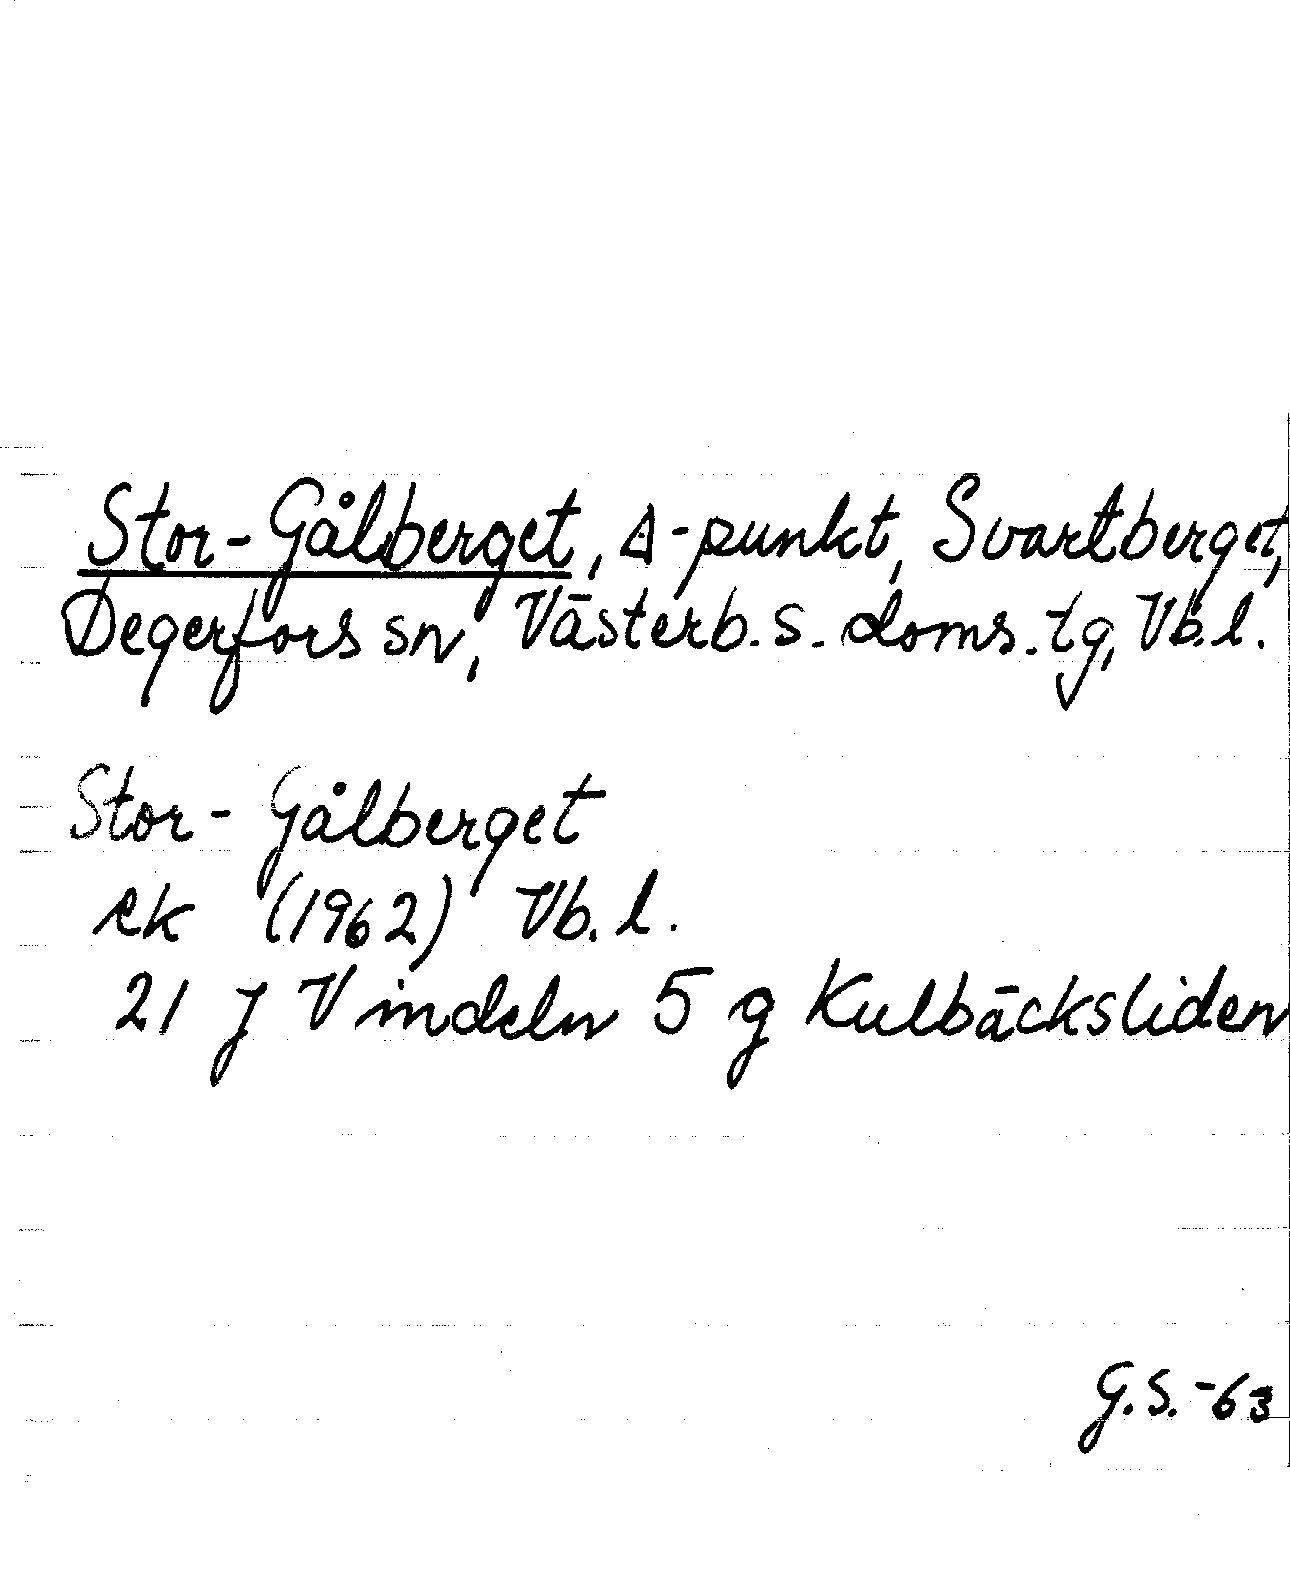 Stor-Gålberget, Δ-punkt, Svartberget,
Degerfors sn, Västerb. s. doms. tg, Vb. l.
Stor-Gålberget
ek (1962) Vb. l.
21 J Vindeln 5 g Kulbäcksliden
G.S. -63